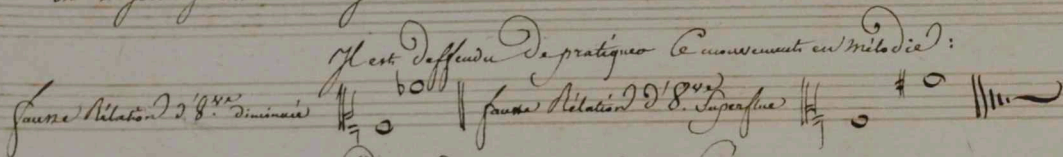 Il est deffendu de pratiquer Ce mouvements en mélodie :
fausse Rélation d'8.ve diminuée fausse Rélation d'8.ve Superflue